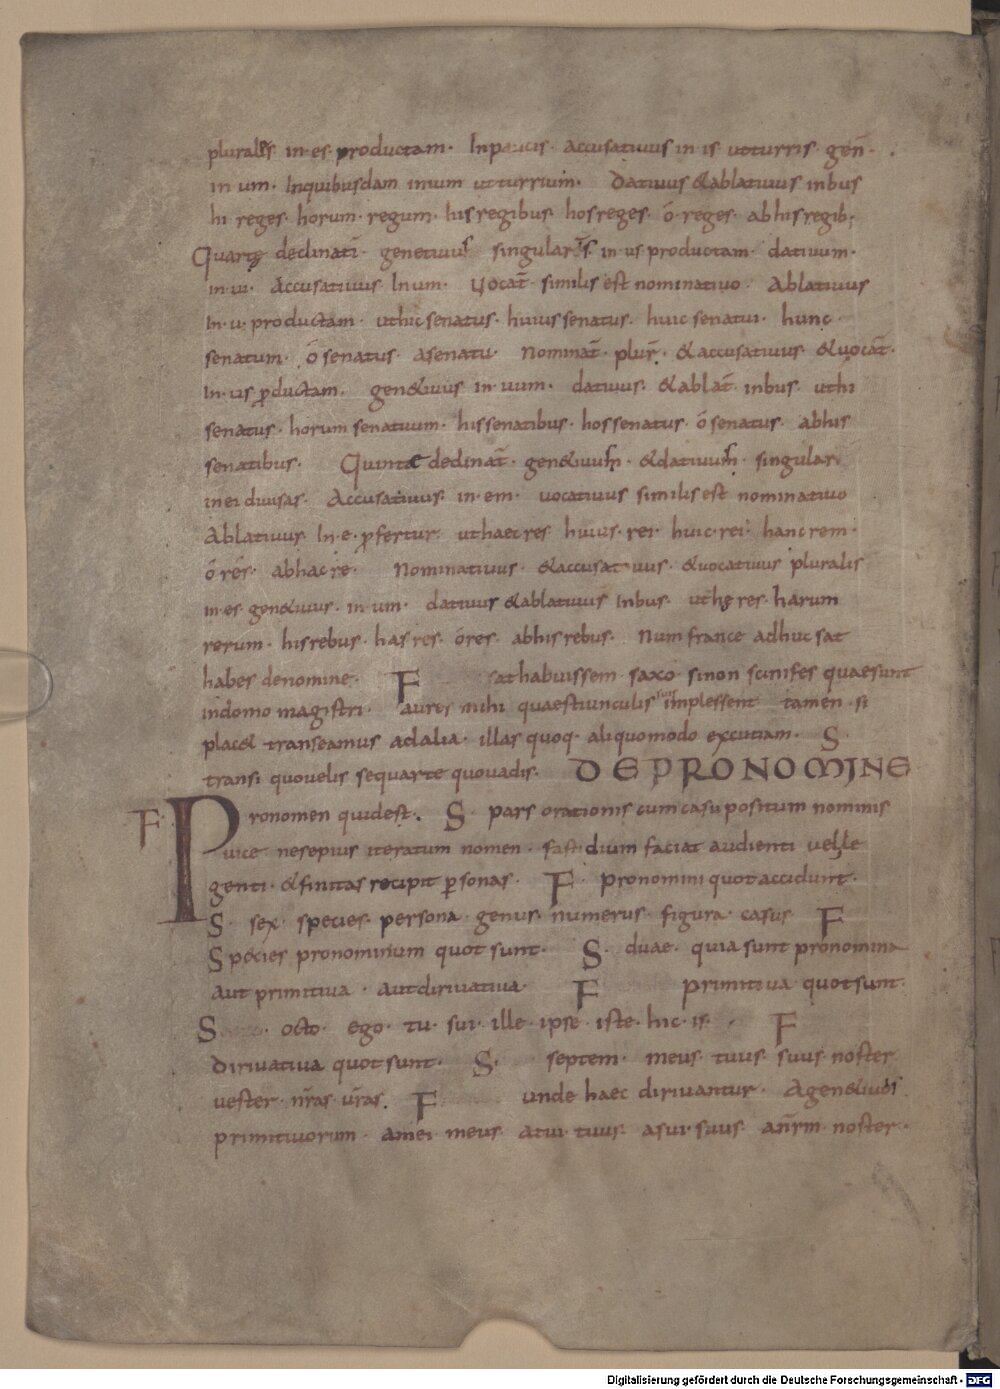 plurales in·es· productam· Inpaucis· accusativus in·is· utturris· geñ·
in um· Inquibusdam inium utturrium· dativus &ablativus inbus
hi reges· horum· regum· hisregibus· hosreges· ó·reges· abhisregib;
Quartę declinati· genetivus singularis in·us productam· dativum·
in·ui· Accusativus Inum· Vocat̄ similis est nominativo· Ablativus
In·u· productam· uthicsenatus· huiussenatus· huic senatui· hunc·
senatum· ósenatus· asenatu· Nominat̄· plur̄· &accusativus· &vocat̄·
In·us ꝓductam· gen&ivus in·uum· dativus· &ablat̄· inbus· uthi
senatus· horum senatuum· hissenatibus· hossenatus· ósenatus· abhis
senatibus· Quintae declinat̄· &dativum· singulari
inei divisas· Accusativus· in·em· vocativus similis est nominativo
Ablativus In·e· ꝓfertur· uthaecres· huius·rei· huic·rei· hancrem·
ó·res· abhacre· Nominativus· &accusativus· &vocativus pluralis
in·es· gen&ivus· in·um· dativus &ablativus Inbus· uthę res· harum
rerum· hisrebus· hasres· óres· abhisrebus· Num france adhuc sat
habes denomine· F sathabuissem· saxo· sinon scinifes quaesunt
indomo magistri· aures mihi quaestiunculis suis implessent tamen·si
plac& transeamus adalia· illas quoq· aliquomodo excutiam· S·
transi quovelis sequarte quovadis· DE PRONOMINE
F· Pronomen quidest· S· pars orationis cum casu positum nominis
vice· nesepius iteratum nomen· fastidium faciat audienti vel le
genti· &finitas recipit ꝑsonas· F· pronomini quot accidunt·
S· sex· species· persona· genus· numerus· figura· casus· F
Species pronominum quot sunt· S· duae· quia sunt pronomina
aut primitiva· aut dirivativa· F primitiva quotsunt·
S· octo· ego· tu· sui· ille· ipse· iste· hic· is· F
dirivativa quotsunt· S· septem· meus· tuus· suus· noster
vester· nr̄as· vr̄as· F unde haec dirivantur· Agen&ivis
primitivorum· amei· meus· atui· tuus· asui· suus· anr̄m· noster·
Digitalisierung gefördert durch die Deutsche Forschungsgemeinschaft - DFG